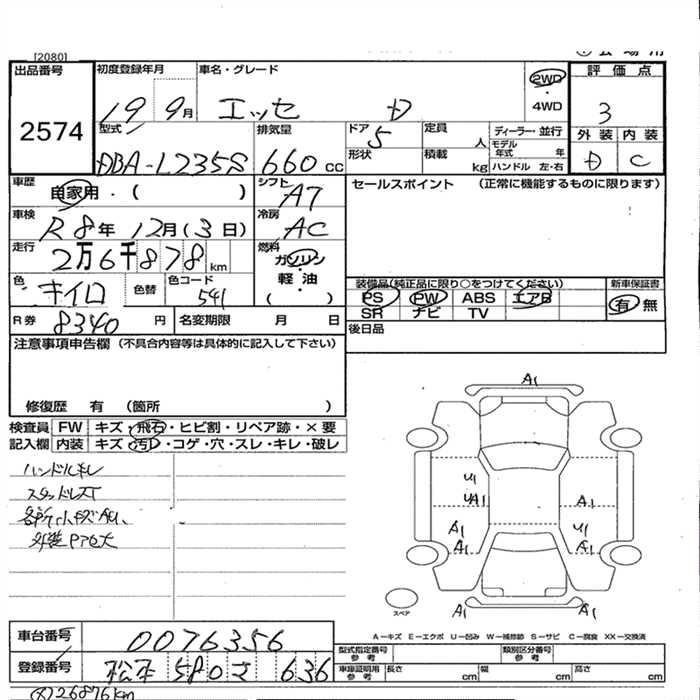 [2080]
出品番号 初度登録年月 車名・グレード 評価点
2574
19 9月 エッセ D 2WD・4WD 3
型式 排気量 ドア 定員 ディーラー・並行 外装 内装
DBA-L235S 660cc 5 人 モデル年式 年 D C
形状 積載 kg ハンドル 左・右
車歴 自家用・( ) シフト AT セールスポイント (正常に機能するものに限ります)
車検 R8年12月(3日) 冷房 AC
走行 2万6千878km 燃料 ガソリン・軽油 ( )
色 キイロ 色替 色コード 541
装備品(純正品に限り○をつけてください) 新車保証書
PS PW ABS エアB 有・無
SR ナビ TV
R券 8340円 名変期限 月 日
後日品
注意事項申告欄(不具合内容等は具体的に記入して下さい)
修復歴 有 (箇所 )
検査員記入欄 FW キズ・飛石・ヒビ割・リペア跡・×要
内装 キズ・汚れ・コゲ・穴・スレ・キレ・破レ
ハンドルスレ
スタッドレスT
各所小キズAU、
A1
U1
UA1 A1
A1 U1
A1 A1
A1 A1
スペア
A-キズ E-エクボ U-凹み W-補修跡 S-サビ C-腐食 XX-交換済
車台番号 0076356
型式指定番号 参考 類別区分番号 参考
登録番号 松本 580 さ 636
車庫証明用 参考 長さ cm 幅 cm 高さ cm
(メ)26876km